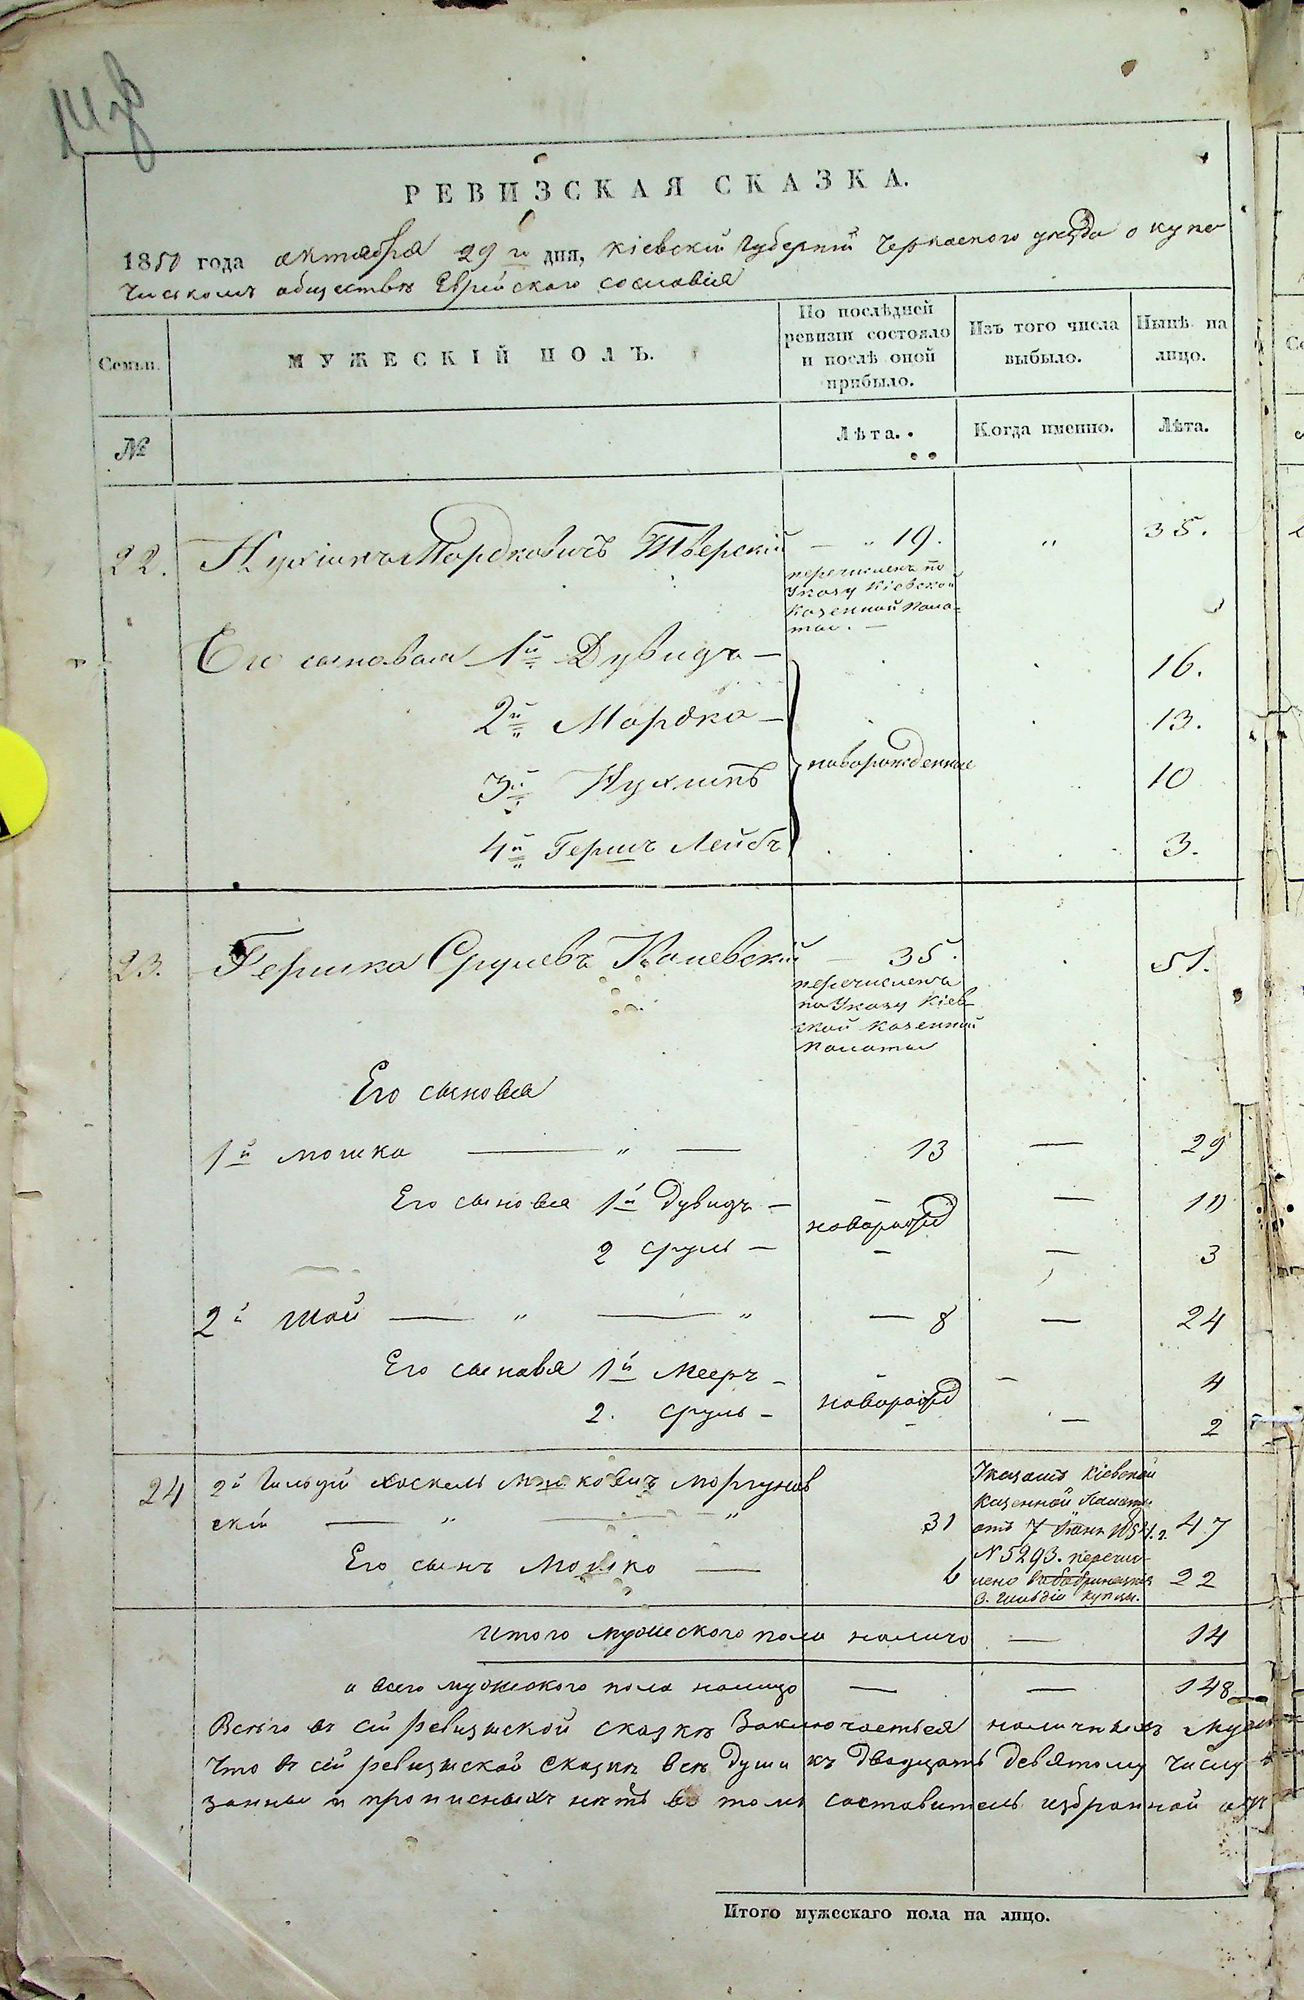 РЕВИЗСКАЯ СКАЗКА.
1850 года октября 29го дня, Кіевской Губерніи Черкаского уезда о купе
ческомъ обществе Еврейскаго сословія
Семьи. МУЖЕСКІЙ ПОЛЪ. По послѣдней ревизіи состояло и послѣ оной прибыло. Изъ того числа выбыло. Нынѣ на лицо.
№ Лѣта. Когда именно. Лѣта.
22. Нухимъ Мордковичъ Тверскій — " 19. " 35.
перечисленъ по
Указу Кіевской
Казенной Пала-
ты. —
Его сыновья 1й Дувидъ — 16.
2й Мордко — 13.
3й Нухимъ новорожденные 10
4й Гершъ Лейбъ 3.
23. Гершко Срулевъ Каневскій — 35. 51.
перечисленъ
по Указу Кіев-
ской Казенной
Палаты
Его сыновья
1й Мошко — " — 13 — 29
Его сыновья 1й Дувидъ — новорожд — 10
2 Сруль — — — 3
2й Шой — " — " — 8 — 24
Его сыновья 1й Мееръ — новорожд — 4
2. Сруль — — — 2
24 2й Гильдіи Хаскель Мошковичъ Моргунов
скій — " — " 31 47
Его сынъ Мошко — 6 22
Указомъ Кіевской
Казенной Палаты
отъ 7
N 5293. перечис-
лено
3. Гильдіи купцы.
Итого мужеского пола налицо — 14
а всего мужеского пола налицо — — 148
Всего въ сей ревизской сказке Заключается наличныхъ муж
Что въ сей ревизской Сказке все души къ двадцать девятому числу
занны и прописныхъ нетъ въ томъ составитель избранной
Итого мужескаго пола на лицо.